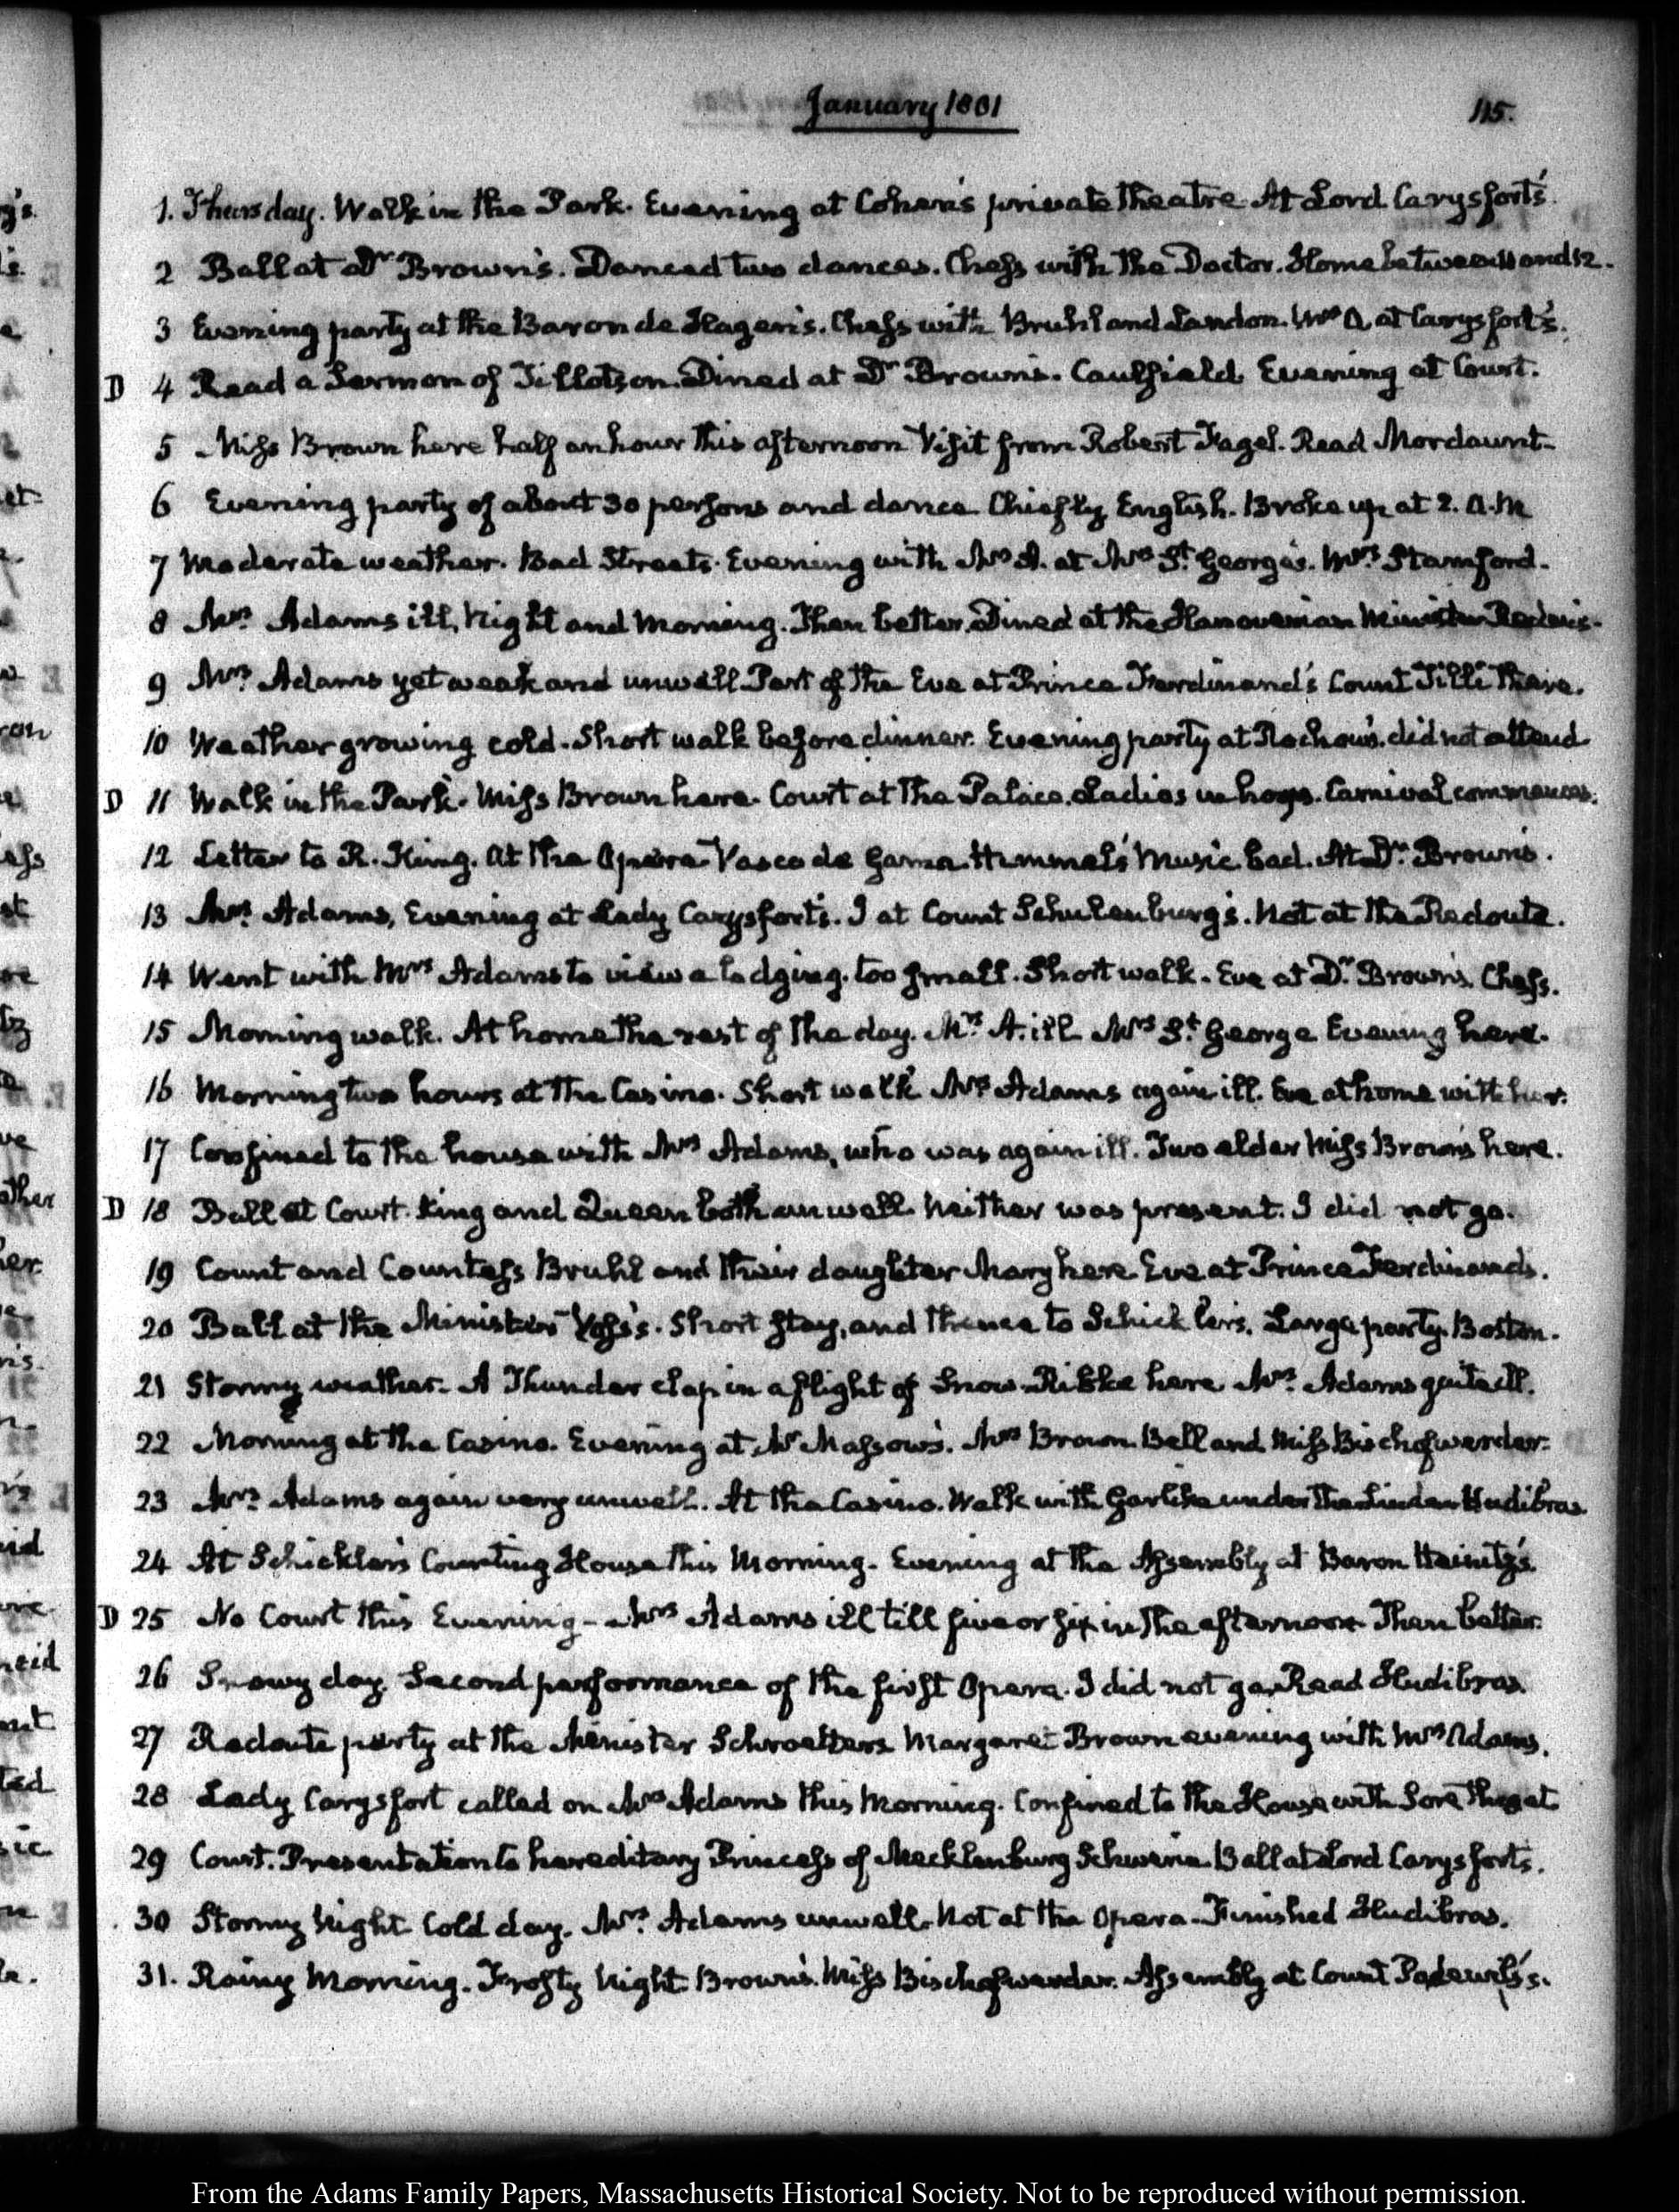 January 1801
115.
1. Thursday. Walk in the Park. Evening at Cohen's private theatre. At Lord Carysfort's.
2 Ball at Dr Brown's. Danced two dances. Chess with the Doctor. Home between 11 and 12.
3 Evening party at the Baron de Hagen's. Chess with Bruhl and Landon. Mrs A. at Carysfort's.
D 4 Read a Sermon of Tillotson. Dined at Dr Brown's. Caulfield. Evening at Court.
5 Miss Brown here half an hour this afternoon Visit from Robert Fagel. Read Mordaunt.
6 Evening party of about 30 persons and dance. Chiefly English. Broke up at 2. A.M
7 Moderate weather. Bad Streets. Evening with Mrs A. at Mrs St George's. Mrs Stamford.
8 Mrs Adams ill, Night and Morning. Then better. Dined at the Hanoverian Minister Reden's.
9 Mrs Adams yet weak and unwell. Part of the Eve at Prince Ferdinand's Count Tilli there.
10 Weather growing cold. Short walk before dinner. Evening party at Rochow's. did not attend
D 11 Walk in the Park. Miss Brown here. Court at the Palace. Ladies in hoops. Carnival commences.
12 Letter to R. King. At the Opera. Vasco de Gama. Himmel's Music bad. At Dr Brown's.
13 Mrs Adams, Evening at Lady Carysfort's. I at Count Schulenburg's. Not at the Redoute.
14 Went with Mrs Adams to view a lodging. too small. Short walk. Eve at Dr Brown's. Chess.
15 Morning walk. At home the rest of the day. Mrs A. ill Mrs St George Evening here.
16 Morning two hours at the Casino. Short walk Mrs Adams again ill. Eve at home with her.
17 Confined to the house with Mrs Adams, who was again ill. Two elder Miss Brown's here.
D 18 Ball at Court. King and Queen both unwell. Neither was present. I did not go.
19 Count and Countess Bruhl and their daughter Mary here. Eve at Prince Ferdinands.
20 Ball at the Minister Voss's. Short stay, and thence to Schickler's. Large party. Boston.
21 Stormy weather. A Thunder clap in a flight of Snow. Ribke here Mrs Adams quite ill.
22 Morning at the Casino. Evening at Mr Massow's. Mrs Brown. Bell and Miss Bischofwerder.
23 Mrs Adams again very unwell. At the Casino. Walk with Garlike under the Linden Hudibras
24 At Schickler's Counting House this Morning. Evening at the Assembly at Baron Heinitz's.
D 25 No Court this Evening - Mrs Adams ill till five or six in the afternoon Then better.
26 Snowy day. Second performance of the first Opera. I did not go. Read Hudibras.
27 Redoute party at the Minister Schroetters Margaret Brown evening with Mrs Adams.
28 Lady Carysfort called on Mrs Adams this Morning. Confined to the House with Sore Throat
29 Court. Presentation to hereditary Princess of Mecklenburg Schwerin. Ball at Lord Carysforts.
30 Stormy Night Cold day. Mrs Adams unwell. Not at the Opera. Finished Hudibras.
31. Rainy Morning. Frosty Night. Brown's. Miss Bischofwerder. Assembly at Count Podewils's.
From the Adams Family Papers, Massachusetts Historical Society. Not to be reproduced without permission.